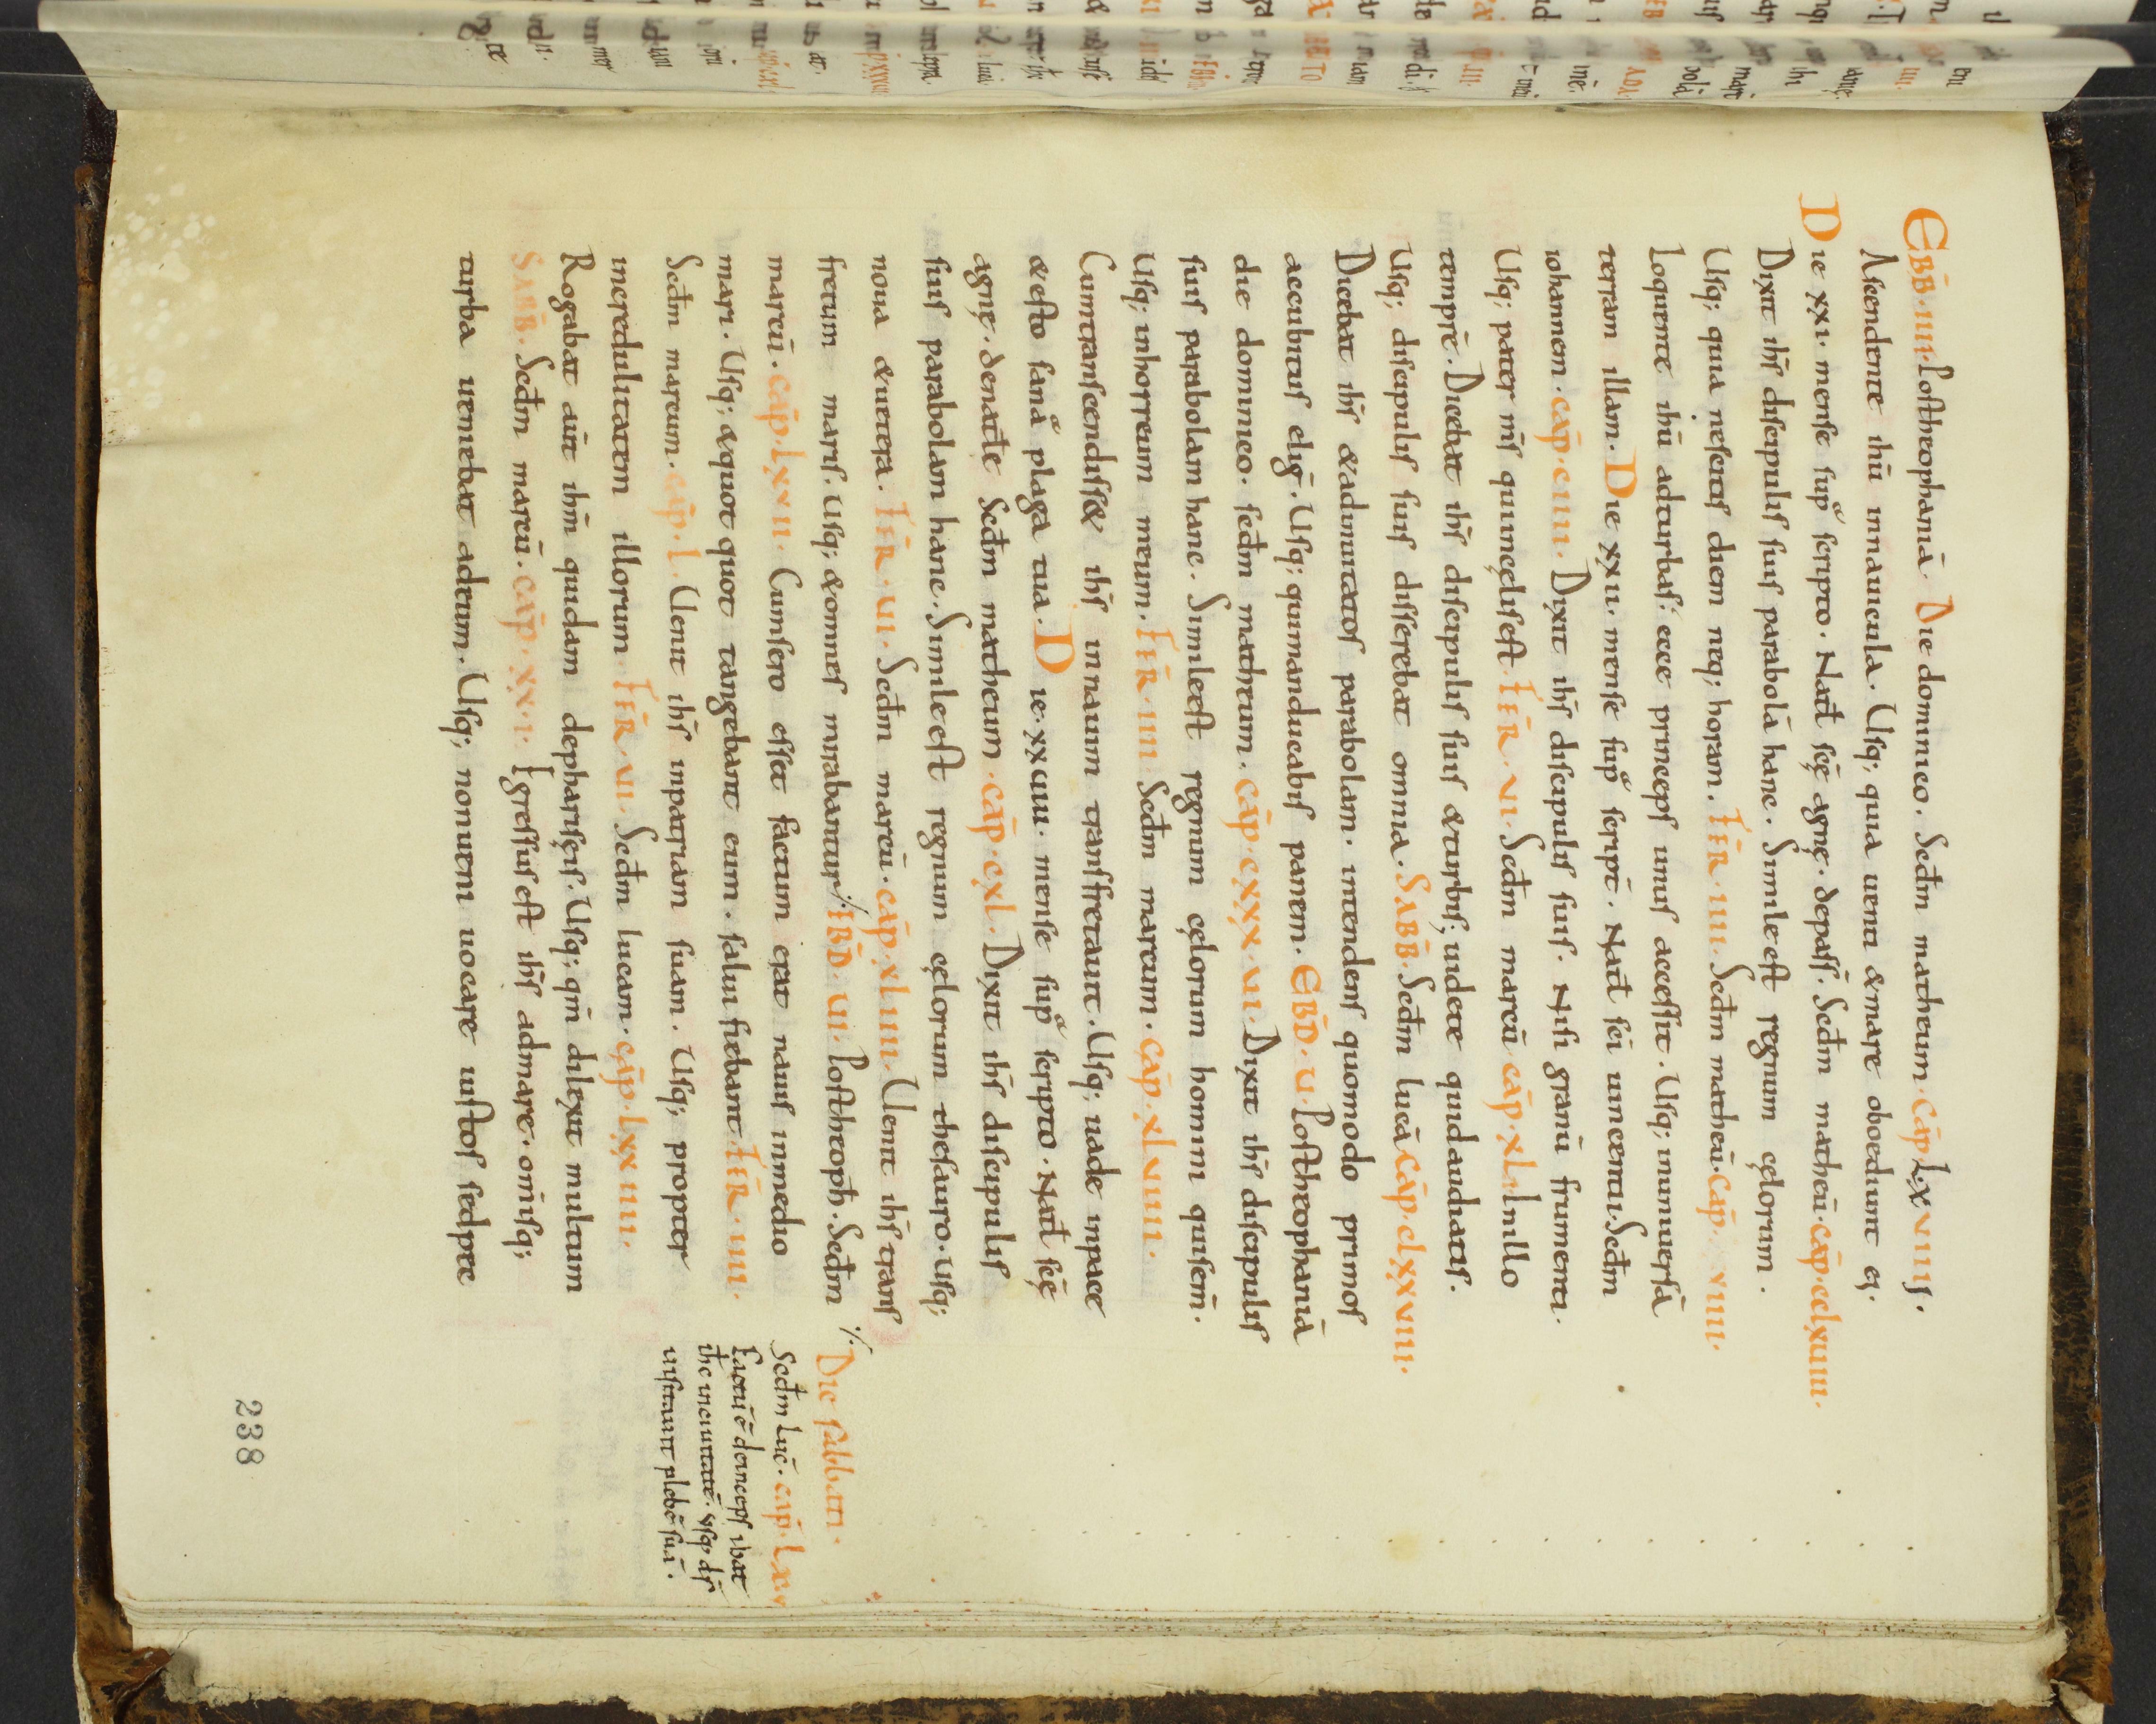 EBD̄·IIII· Posttheophaniā. Die dominico. Scdm matheum· cap̄ LXVIIII.
Ascendente ihū innauicula. Usq; quia uenti & mare oboediunt ei.
Die XXI. mense sup̄ scripto. Nat̄ scē agnę. depass̄. Scdm matheū. cap̄. cclxuiiii.
Dixit ih̄s discipulis suis parabolā hanc. Simile est regnum cęlorum.
Usq; quia nescitis diem neq; horam. FER̄. IIII. Scdm matheū. cap̄. uiiii.
Loquente ihū adturbas: ecce princeps unus accessit. Usq; inuniuersā
terram illam. Die XXII. mense sup̄ script̄. Nat̄ sc̄i uincentii. Scdm
iohannem. cap̄. ciiii. Dixit ih̄s discipulis suis. Nisi granū frumenti.
Usq; pater m̄s quincęlisest. FER̄. VI. Scdm marcū cap̄. xl. Inillo
tempr̄e. Dicebat ih̄s discipulis suis & turbis; uidete quidaudiatis.
Usq; discipulis suis disserebat omnia. SABB̄. Scdm lucā cap̄. clxxuiii.
Dicebat ih̄s & adinuitatos parabolam. intendens quomodo primos
accubitus eliḡ. Usq; quimanducabit panem. EBD̄. U. Posttheophaniā
die dominico. scdm matheum. cap̄. cxxx.ui. Dixit ih̄s discipulis
suis parabolam hanc. Simileest regnum cęlorum homini quisem̄.
Usq; inhorreum meum. FER̄. IIII Scdm marcum. cap̄. xluiiii.
Cumtranscendiss& ih̄s innauim transfretauit. Usq; uade inpace
& esto sana plaga tua. Die. xxuiii. mense sup̄ scripto. Nat̄ scę̄
agnę. denatale Scdm matheum. cap̄. cxl. Dixit ih̄s discipulis
suis parabolam hanc. Simileest regnum cęlorum thesauro. usq;
noua & uetera. FER̄. UI. Scdm marcū. cap̄ xluiii. Uenit ih̄s trans
fretum maris. Usq; & omnes mirabantur. EBD̄. UI. Posttheoph̄. Scdm
marcū. cap̄. lxuii. Cumsero esset factum erat nauis inmedio
mari. Usq; & quot quot tangebant eum. salui fiebant. FER̄. IIII.
Scdm marcum. cap̄. l. Uenit ih̄s inpatriam suam. Usq; propter
incredulitatem illorum. FER̄. VI. Scdm lucam. cap̄. lxxiiii.
Rogabat aūt ihm̄ quidam depharisęis. Usq; qm̄ dilexit multum
SABB̄. Scdm marcū. cap̄. xx.i. Igressus est ih̄s admare. om̄isq;
turba ueniebat adeum. Usq; nonueni uocare iustos sedpec
Die sabbati.
Scdm luc̄. cap̄. lxu
Factū ē deinceps ibat
ihc inciuitatē. usq. ds̄
uisitauit plebē suā.
238